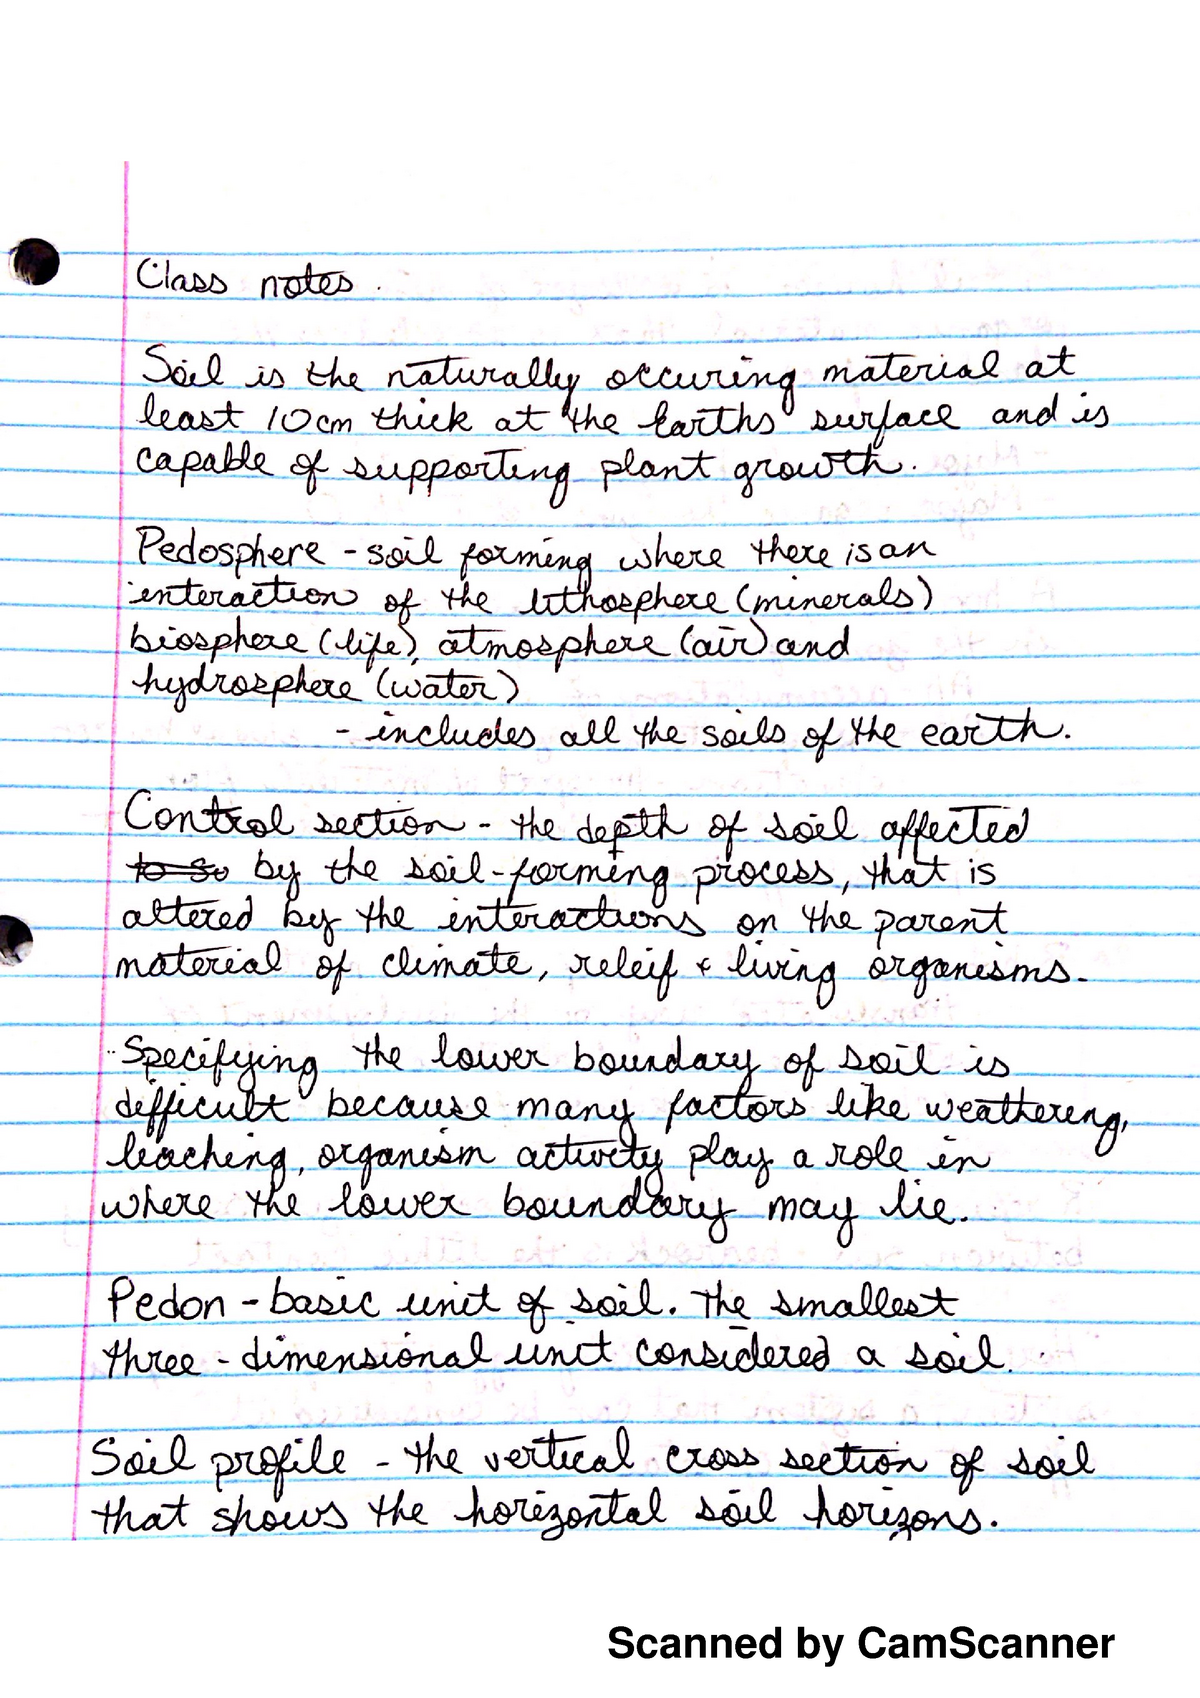 Class notes.
Soil is the naturally occuring material at
least 10cm thick at the Earths surface and is
capable of supporting plant growth.
Pedosphere - soil forming where there is an
interaction of the lithosphere (minerals)
biosphere (life), atmosphere (air) and
hydrosphere (water)
- includes all the soils of the earth.
Control section - the depth of soil affected
to so by the soil-forming process, that is
altered by the interactions on the parent
material of climate, releif & living organisms.
Specifying the lower boundary of soil is
difficult because many factors like weathering,
leaching, organism activity play a role in
where the lower boundary may lie.
Pedon - basic unit of soil. The smallest
three - dimensional unit considered a soil.
Soil profile - the vertical cross section of soil
that shows the horizontal soil horizons.
Scanned by CamScanner